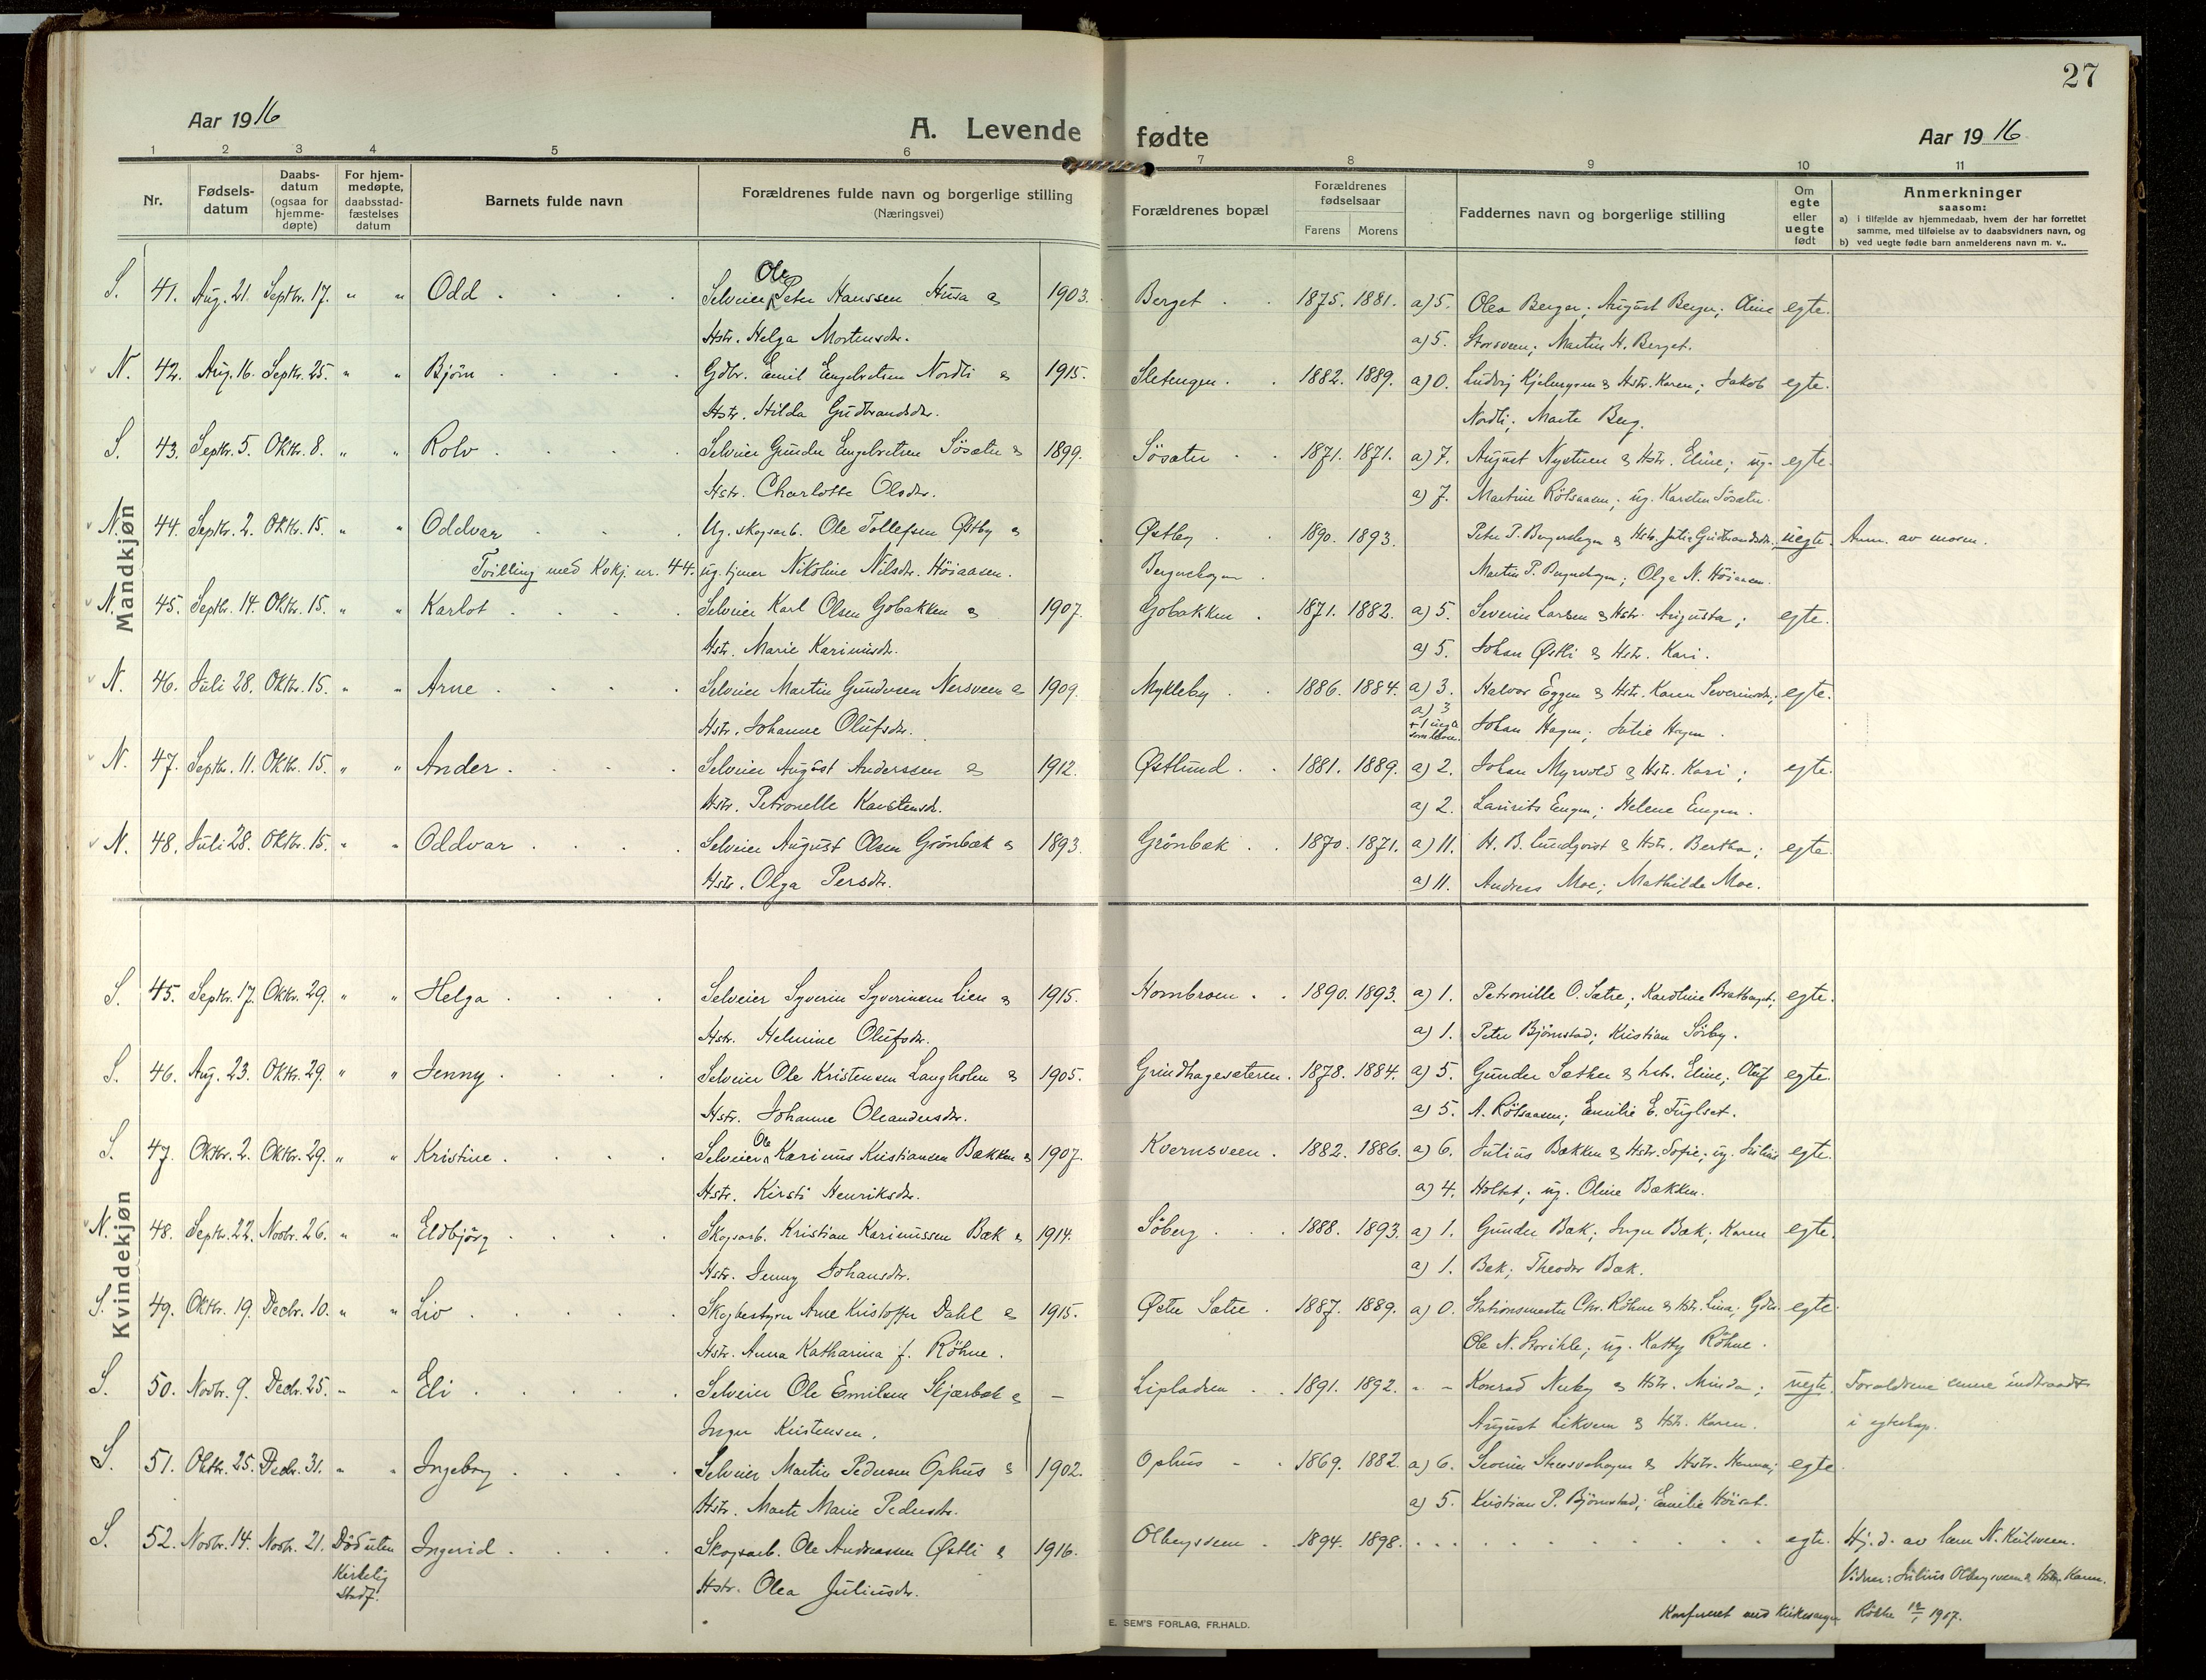 27
Aar 1916
A. Levende fødte
Aar 1916
1 2 3 4 5 6 7 8 9 10 11
Nr.
Fødsels-
datum
Daabs-
datum
(ogsaa for
hjemme-
døpte)
For hjem-
medøpte,
daabsstad-
fæstelses
datum
Barnets fulde navn
Forældrenes fulde navn og borgerlige stilling
(Næringsvei)
Forældrenes bopæl
Forældrenes
fødselsaar
Farens Morens
Faddernes navn og borgerlige stilling
Om
egte
eller
uegte
født
Anmerkninger
saasom:
a) i tilfælde av hjemmedaab, hvem der har forrettet
samme, med tilføielse av to daabsvidners navn, og
b) ved uegte fødte barn anmelderens navn m. v..
Mandkjøn
S. 41. Aug. 21. Septbr. 17. " " Odd Selveier Ole Peter Hanssen Husa & 1903. Berget 1875. 1881. a) 5. Olea Berger; August Berger; Oline egte.
Hstr. Helga Mortensdtr. a) 5. Storsveen; Martin H. Berget.
N. 42. Aug. 16. Septbr. 25. " " Bjørn Gdbr. Emil Engebretsen Nordli & 1915. Sletengen 1882. 1889. a) 0. Ludvig & Hstr. Karen; Jakob egte.
Hstr. Hilda Gudbrandsdtr. Nordli; Marte Berg.
S. 43. Septbr. 5. Oktbr. 8. " " Rolv Selveier Gunder Engebretsen Søsæter & 1899. Søsæter 1871. 1871. a) 7. August Nystuen & Hstr. Eline; ug. egte.
Hstr. Charlotte Olsdtr. a) 7. Martine Rötsaasen; ug. Karsten Søsæter.
N. 44. Septbr. 2. Oktbr. 15. " " Oddvar Ug. skogsarb. Ole Tollefsen Østby & Østby 1890. 1893. Peter P. Bergershagen & Hstr. Julie Gudbrandsdtr. uegte. Anm. av moren.
Tvilling med Kvkj. nr. 44. ug. tjener Nikoline Nilsdtr. Höiaasen. Bergershagen Martin P. Bergershagen; Olga N. Höiaasen.
N. 45. Septbr. 14. Oktbr. 15. " " Karlot Selveier Karl Olsen Gobakken & 1907. Gobakken 1871. 1882. a) 5. Severin Larsen & Hstr. Augusta; egte.
Hstr. Marie Karinusdtr. a) 5. Johan Østli & Hstr. Kari.
N. 46. Juli 28. Oktbr. 15. " " Arne Selveier Martin Gundersen Nersveen & 1909. Mykleby 1886. 1884. a) 3. Halvor Eggen & Hstr. Karen Severinsdtr.; egte.
Hstr. Johanne Olufsdtr. a) 3 + 1 uegte som lever. Johan Hagen; Julie Hagen.
N. 47. Septbr. 11. Oktbr. 15. " " Ander Selveier August Anderssen & 1912. Østlund 1881. 1889. a) 2. Johan Myrvold & Hstr. Kari; egte.
Hstr. Petronelle Karstensdtr. a) 2. Laurits Engen; Helene Engen.
N. 48. Juli 28. Oktbr. 15. " " Oddvar Selveier August Olsen Grönbæk & 1893. Grönbæk 1870. 1871. a) 11. H. B. Lundqvist & Hstr. Bertha; egte.
Hstr. Olga Persdtr. a) 11. Andreas Moe; Mathilde Moe.
Kvindekjøn
S. 45. Septbr. 17. Oktbr. 29. " " Helga Selveier Syverin Syverinsen Lien & 1915. Hornbroen 1890. 1893. a) 1. Petronille O. Sætre; Karoline Bratberget; egte.
Hstr. Helmine Olufsdtr. a) 1. Peter Björnstad; Kristian Sörby.
S. 46. Aug. 23. Oktbr. 29. " " Jenny Selveier Ole Kristensen Langholen & 1905. Grindhagesæteren. 1878. 1884. a) 5. Gunder Sæther & hstr. Eline; Oluf egte.
Hstr. Johanne Oleandersdtr. a) 5. A. Rötsaasen; Emilie E. Fuglset.
S. 47. Oktbr. 2. Oktbr. 29. " " Kristine Selveier Ole Karinus Kristiansen Bækken & 1907. Kvernsveen. 1882. 1886. a) 6. Julius Bækken & Hstr. Sofie; ug. Julius egte.
Hstr. Kirsti Henriksdtr. a) 4. Holtet; ug. Oline Bækken.
N. 48. Septbr. 22. Novbr. 26. " " Eldbjörg Skogsarb. Kristian Karinussen Bæk & 1914. Söberg 1888. 1893. a) 1. Gunder Bæk; Inger Bæk; Karen egte.
Hstr. Jenny Johansdtr. a) 1. Bæk; Theodor Bæk.
S. 49. Oktbr. 19. Decbr. 10. " " Liv Skogbestyrer Arne Kristoffer Dahl & 1915. Øster Sætre 1887. 1889. a) 0. Stationsmester Chr. Röhne & Hstr. Lina; Gdbr. egte.
Hstr. Anna Katharina f. Röhne. Ole N. Storihle; ug. Katty Röhne.
S. 50. Novbr. 9. Decbr. 25. " " Eli Selveier Ole Emilsen Skjærbæk & — Lipladsen 1891. 1892. " " Konrad Nerby & Hstr. Minda; uegte. Forældrene senere indtraadt
Inger Kristensen. August Likveen & Hstr. Karen. i egteskap.
S. 51. Oktbr. 25. Decbr. 31. " " Ingeborg Selveier Martin Pedersen Ophus & 1902. Ophus 1869. 1882. a) 6. Severin & Hstr. Hanna; egte.
Hstr. Marte Marie Pedersdtr. a) 5. Kristian P. Björnstad; Emilie Höiset.
S. 52. Novbr. 14. Novbr. 21. Död uten Kirkelig Stadf. Ingerid Skogsarb. Ole Andreassen Østli & 1916. Olbergsveen 1894. 1898. egte. Hj. d. av lærer N. Kiilsveen.
Hstr. Olea Juliusdtr. Vidner: Julius Olbergsveen & Hstr. Karen.
Konfereret med Kirkesanger Röhne 12/1 1917.
E. SEM'S FORLAG, FR.HALD.